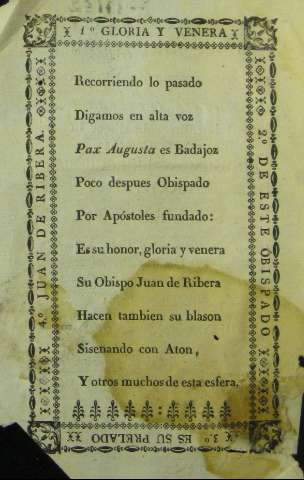 1º GLORIA Y VENERA
2.º DE ESTE OBISPADO
3.º ES SU PRELADO
4.º JUAN DE RIBERA.
Recorriendo lo pasado
Digamos en alta voz
Pax Augusta es Badajoz
Poco despues Obispado
Por Apóstoles fundado:
Es su honor, gloria y venera
Su Obispo Juan de Ribera
Hacen tambien su blason
Sisenando con Aton,
Y otros muchos de esta esfera.